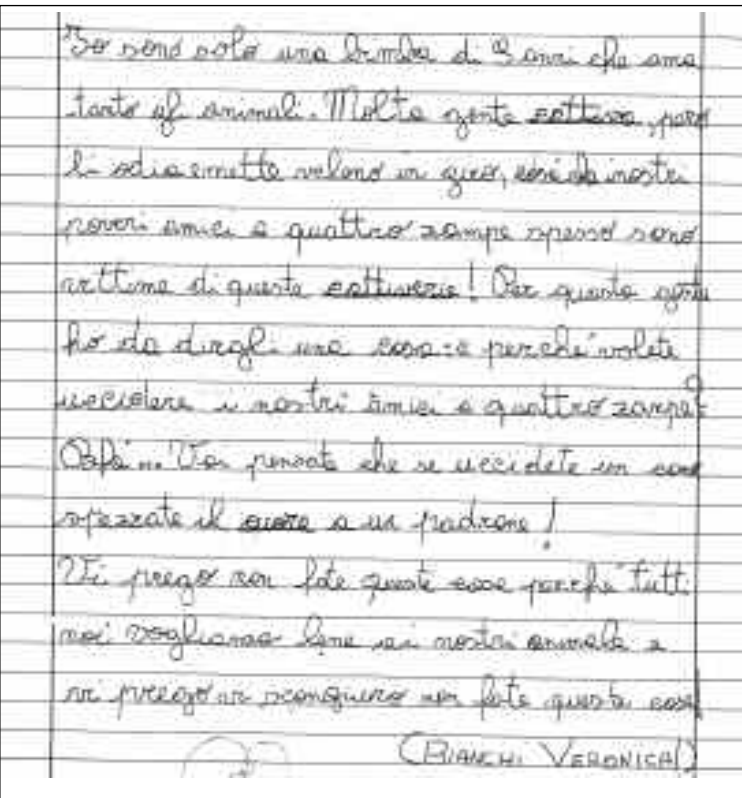 Io sono solo una bimba di 9 anni che ama
tanto gli animali. Molta gente cattiva, però
li odia e mette veleno in giro, così i nostri
poveri amici a quattro zampe spesso sono
vittime di queste cattiverie! Per questa gente
ho da dirgli una cosa: e perché volete
uccidere i nostri amici a quattro zampe?
Voi pensate che se uccidete un cane
spezzate il cuore a un padrone!
Vi prego non fate queste cose perché tutti
noi vogliamo bene ai nostri animali e
vi prego vi scongiuro non fate queste cose
(BIANCHI VERONICA)